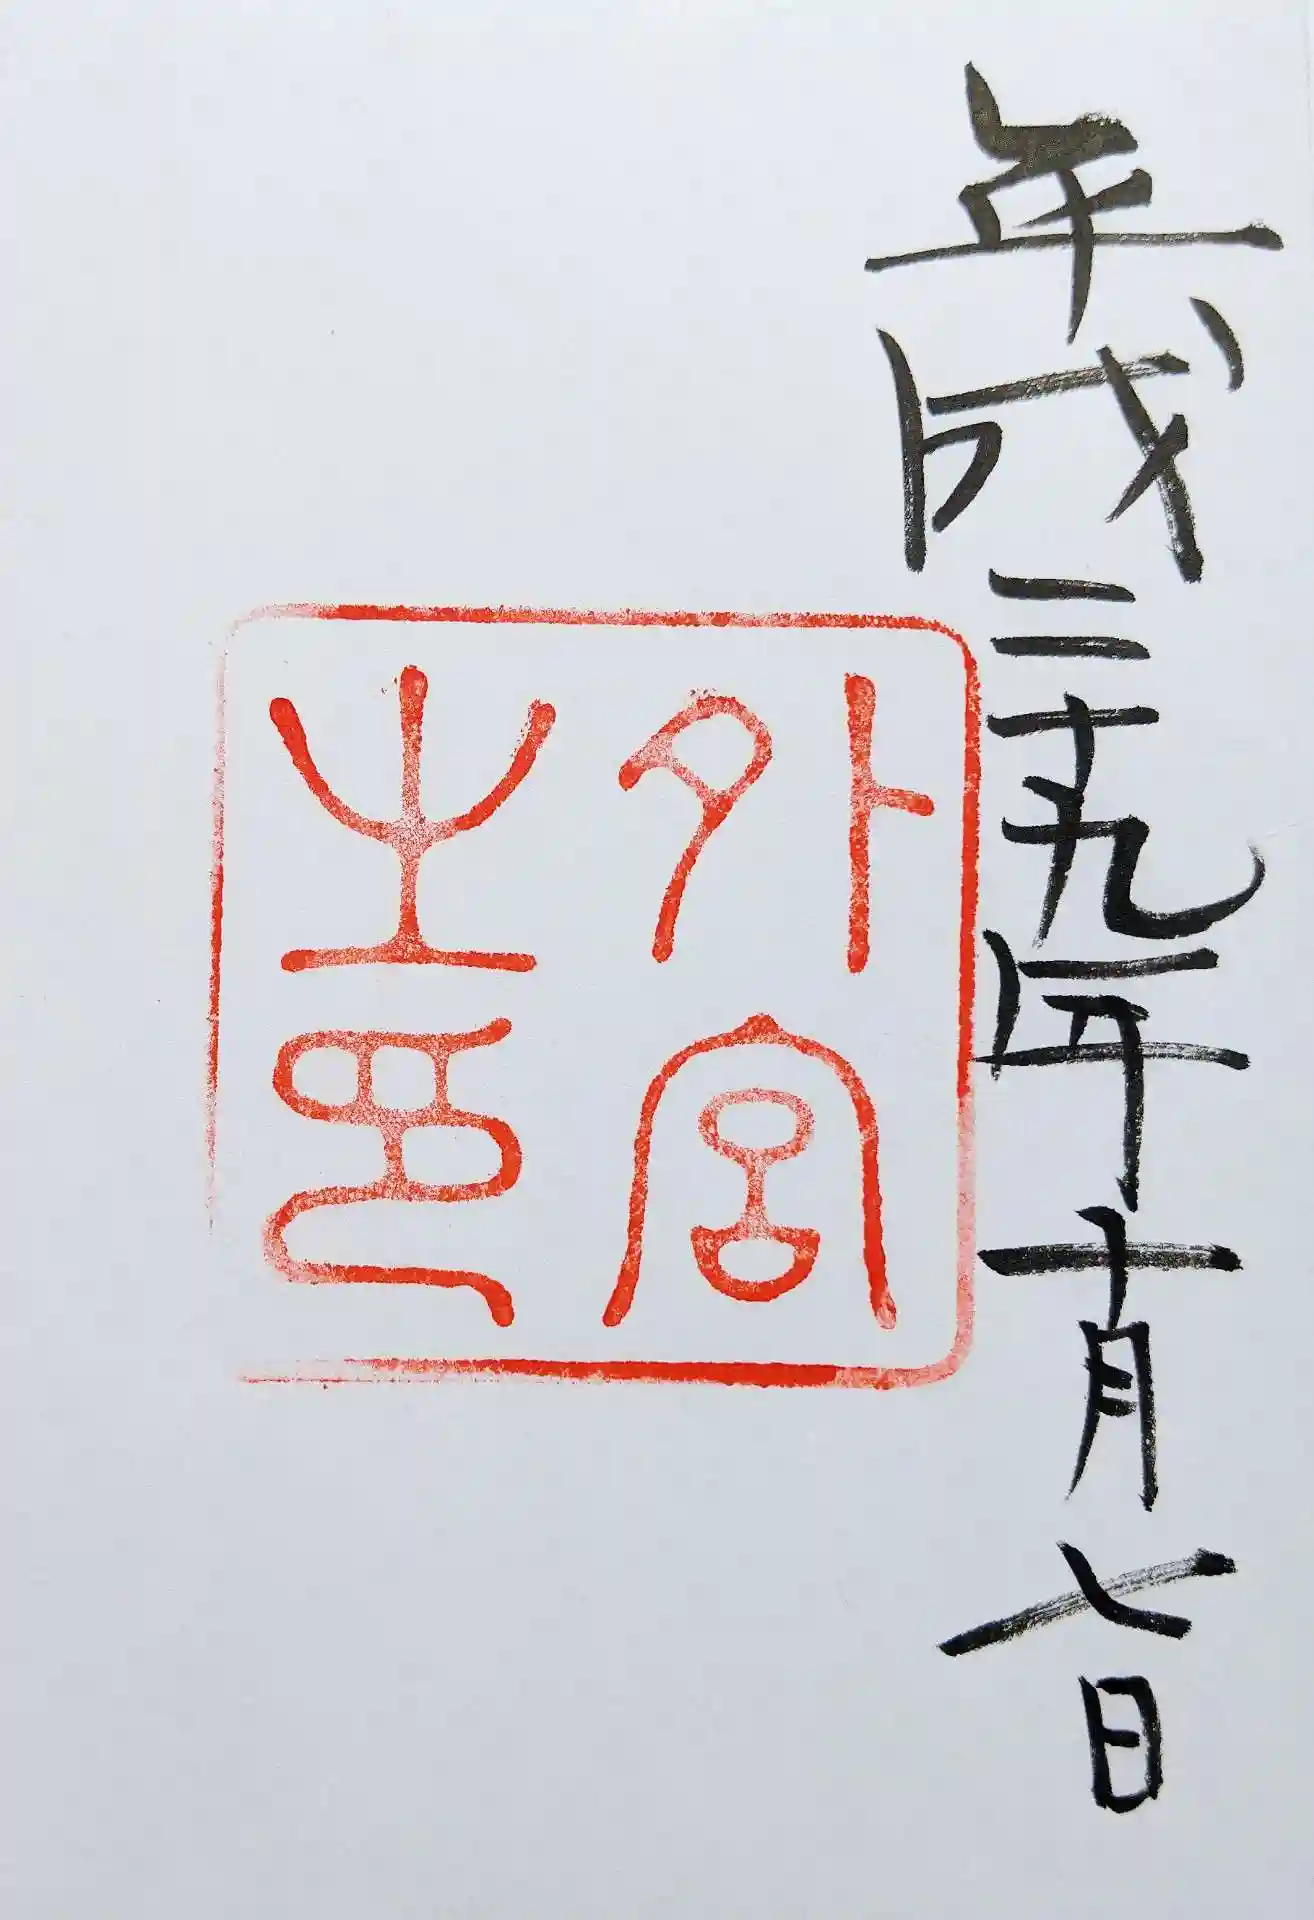 平成二十九年十月七日
外宮
之印